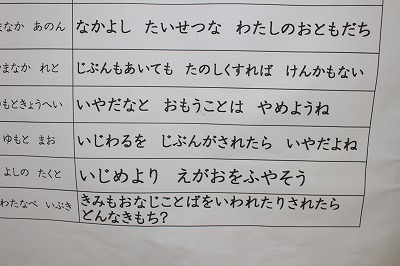 まなか あのん なかよし たいせつな わたしのおともだち
やまなか れと じぶんもあいても たのしくすれば けんかもない
もときょうへい いやだなと おもうことは やめようね
ゆもと まお いじわるを じぶんがされたら いやだよね
よしの たくと いじめより えがおをふやそう
わたなべ いぶき きみもおなじことばをいわれたりされたら
どんなきもち?